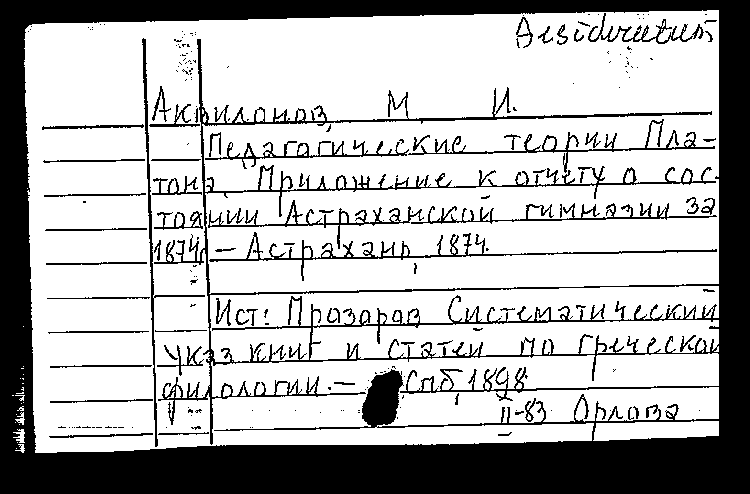 Desideratum
Аквилонов, М. И.
Педагогические теории Пла-
тона. Приложение к отчету о сос-
тоянии Астраханской гимназии за
1874г. – Астрахань, 1874.
Ист: Прозоров Систематический
указ. книг и статей по греческой
филологии. – Спб, 1898
II-83 Орлова